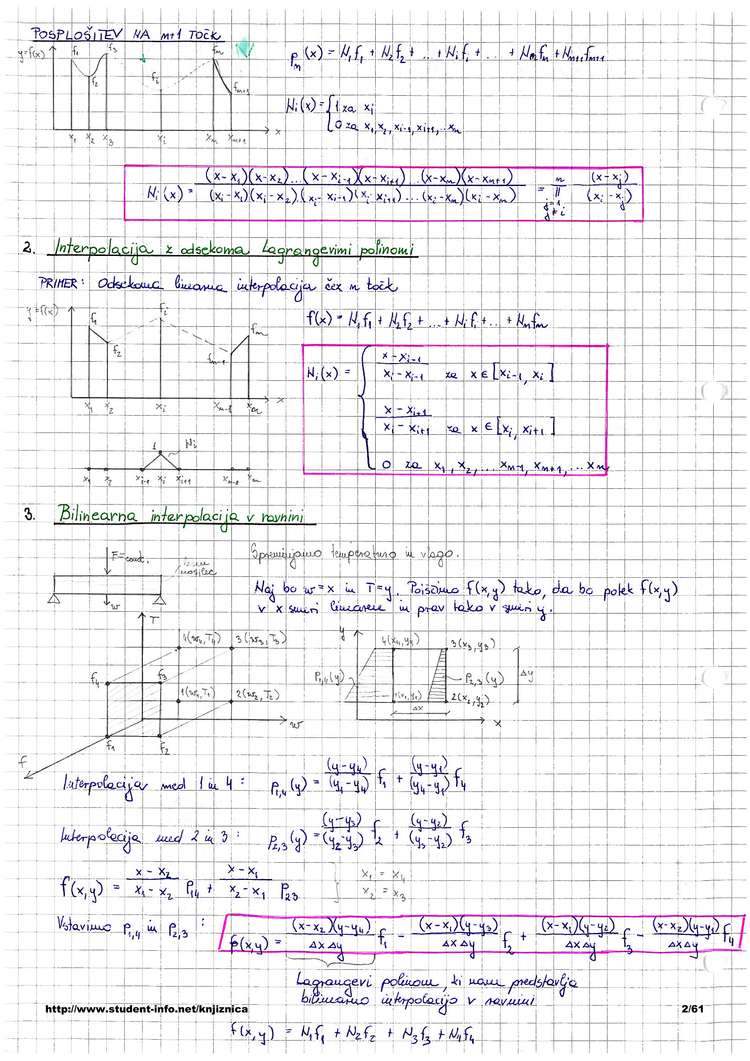 POSPLOŠITEV NA m+1 TOČK
y=f(x) f₁ f₂ f₃ fᵢ fₘ fₘ₊₁
x₁ x₂ x₃ xᵢ xₘ xₘ₊₁ x
pₘ(x) = N₁f₁ + N₂f₂ + ... + Nᵢfᵢ + ... + Nₘfₘ + Nₘ₊₁fₘ₊₁
Nᵢ(x) = { 1 za xᵢ
0 za x₁, x₂, xᵢ₋₁, xᵢ₊₁, ... xₘ
Nᵢ(x) = (x-x₁)(x-x₂)...(x-xᵢ₋₁)(x-xᵢ₊₁)...(x-xₘ)(x-xₘ₊₁) / (xᵢ-x₁)(xᵢ-x₂)(xᵢ-xᵢ₋₁)(xᵢ-xᵢ₊₁)...(xᵢ-xₘ)(xᵢ-xₘ) = ∏ⁿ j=1 j≠i (x-xⱼ) / (xᵢ-xⱼ)
2. Interpolacija z odsekoma Lagrangevimi polinomi
PRIMER: Odsekoma linearna interpolacija čez n točk
y=f(x) f₁ f₂ fᵢ fₘ₋₁ fₘ
x₁ x₂ xᵢ xₘ₋₁ xₘ x
f(x) = N₁f₁ + N₂f₂ + ... + Nᵢfᵢ + ... + Nₘfₘ
Nᵢ(x) = { x-xᵢ₋₁ / xᵢ-xᵢ₋₁ za x ∈ [xᵢ₋₁, xᵢ]
x-xᵢ₊₁ / xᵢ-xᵢ₊₁ za x ∈ [xᵢ, xᵢ₊₁]
0 za x₁, x₂, ... xₘ₋₁, xₘ₊₁, ... xₘ
1 Nᵢ
x₁ x₂ xᵢ₋₁ xᵢ xᵢ₊₁ xₘ₋₁ xₘ
3. Bilinearna interpolacija v ravnini
F=const. nosilec
w
Spreminjamo temperaturo in vlago.
Naj bo w=x in T=y. Poiščimo f(x,y) tako, da bo potek f(x,y)
v x smeri linearen in prav tako v smeri y.
T
4(w₄,T₄) 3(w₃,T₃)
f₄ f₃
1(w₁,T₁) 2(w₂,T₂)
w
f₁ f₂
f
y
4(x₄,y₄) 3(x₃,y₃)
P₁,₄(y) P₂,₃(y) Δy
1(x₁,y₁) 2(x₂,y₂)
Δx
x
Interpolacija med 1 in 4: P₁,₄(y) = (y-y₄)/(y₁-y₄) f₁ + (y-y₁)/(y₄-y₁) f₄
Interpolacija med 2 in 3: P₂,₃(y) = (y-y₃)/(y₂-y₃) f₂ + (y-y₂)/(y₃-y₂) f₃
f(x,y) = x-x₂ / x₁-x₂ P₁₄ + x-x₁ / x₂-x₁ P₂₃
x₁ = x₄
x₂ = x₃
Vstavimo P₁,₄ in P₂,₃:
p(x,y) = (x-x₂)(y-y₄)/ΔxΔy f₁ - (x-x₁)(y-y₃)/ΔxΔy f₂ + (x-x₁)(y-y₂)/ΔxΔy f₃ - (x-x₂)(y-y₁)/ΔxΔy f₄
Lagrangevi polinom, ki nam predstavlja
bilinearno interpolacijo v ravnini
http://www.student-info.net/knjiznica 2/61
f(x,y) = N₁f₁ + N₂f₂ + N₃f₃ + N₄f₄